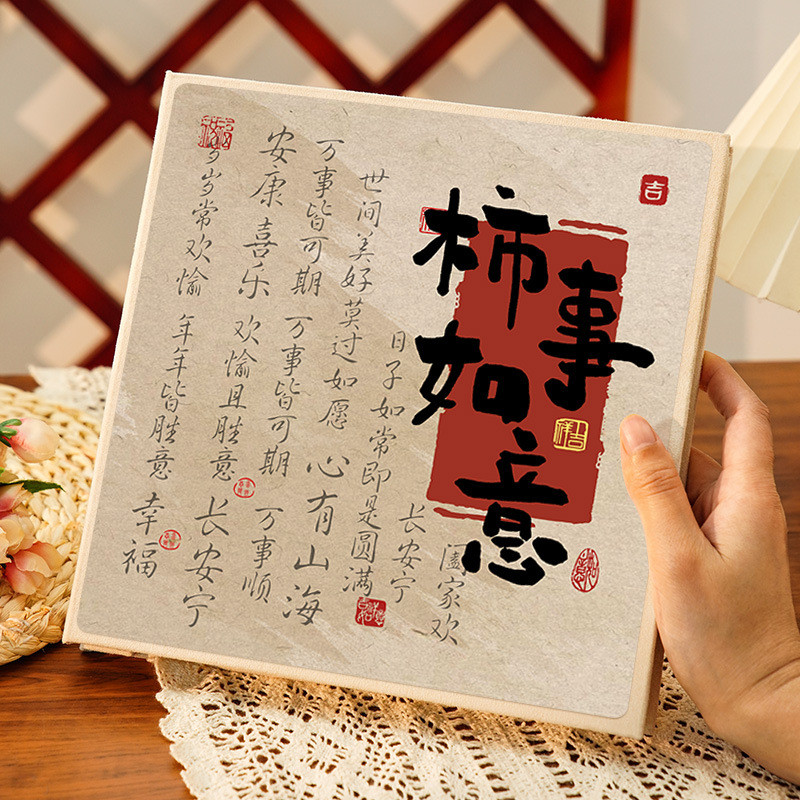 柿事如意
吉
吉祥
阖家欢
长安宁
日子如常即是圆满
世间美好 莫过如愿 心有山海
万事皆可期 万事皆可期 万事顺
安康喜乐 欢愉且胜意 长安宁
岁岁常欢愉 年年皆胜意 幸福